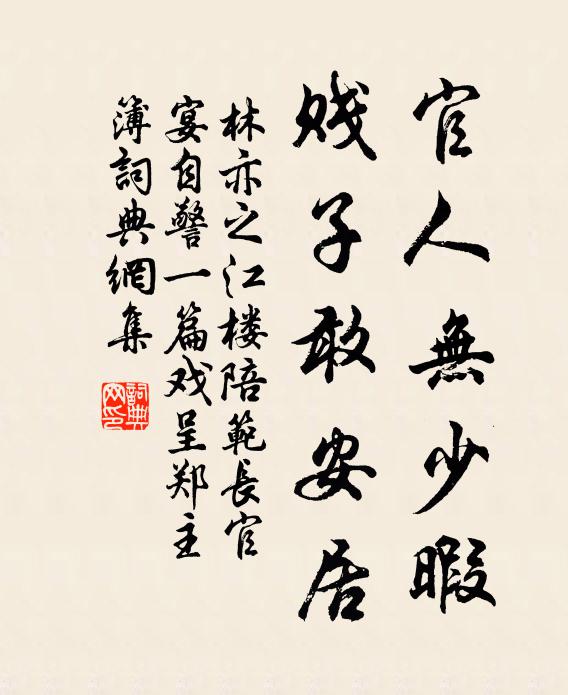 官人無少暇
賤子敢安居
林亦之江楼陪範長官
宴自警一篇戏呈郑主
簿詞典網集
詞典
网印